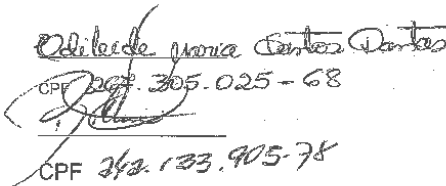 Odileide Maria Santos Dantas
CPF 297.305.025-68
CPF 242.133.905-78